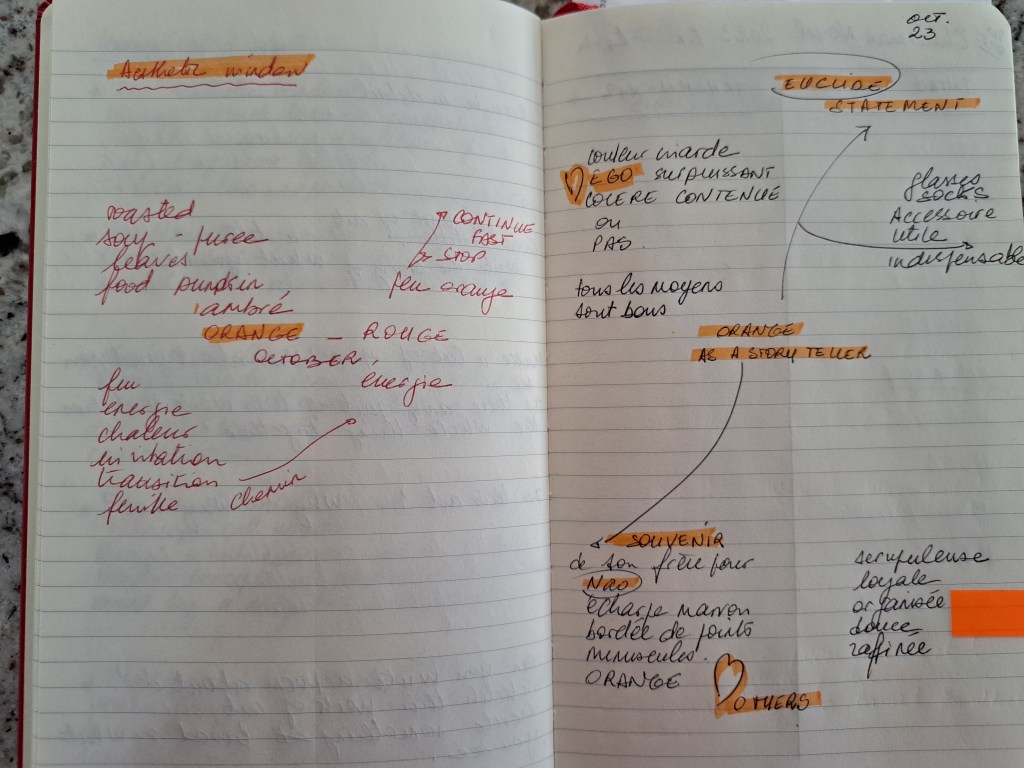 roasted
soup - puree
leaves
food pumpkin
ambré
ORANGE - ROUGE
OCTOBER,
CONTINUE
FAST
STOP
feu orange
feu
énergie
énergie
chaleur
transition
feuille
chemin
OCT.
23
EUCLIDE
STATEMENT
couleur
EGO SURPUISSANT
COLERE CONTENUE
ou
PAS.
tous les moyens
sont bons
glasses
SOCKS
Accessoire
utile
indispensable
ORANGE
AS A STORY TELLER
SOUVENIR
de son frère pour
Nao
écharpe marron
bordée de points
minuscules.
ORANGE
OTHERS
scrupuleuse
loyale
organisée
douce
raffinée